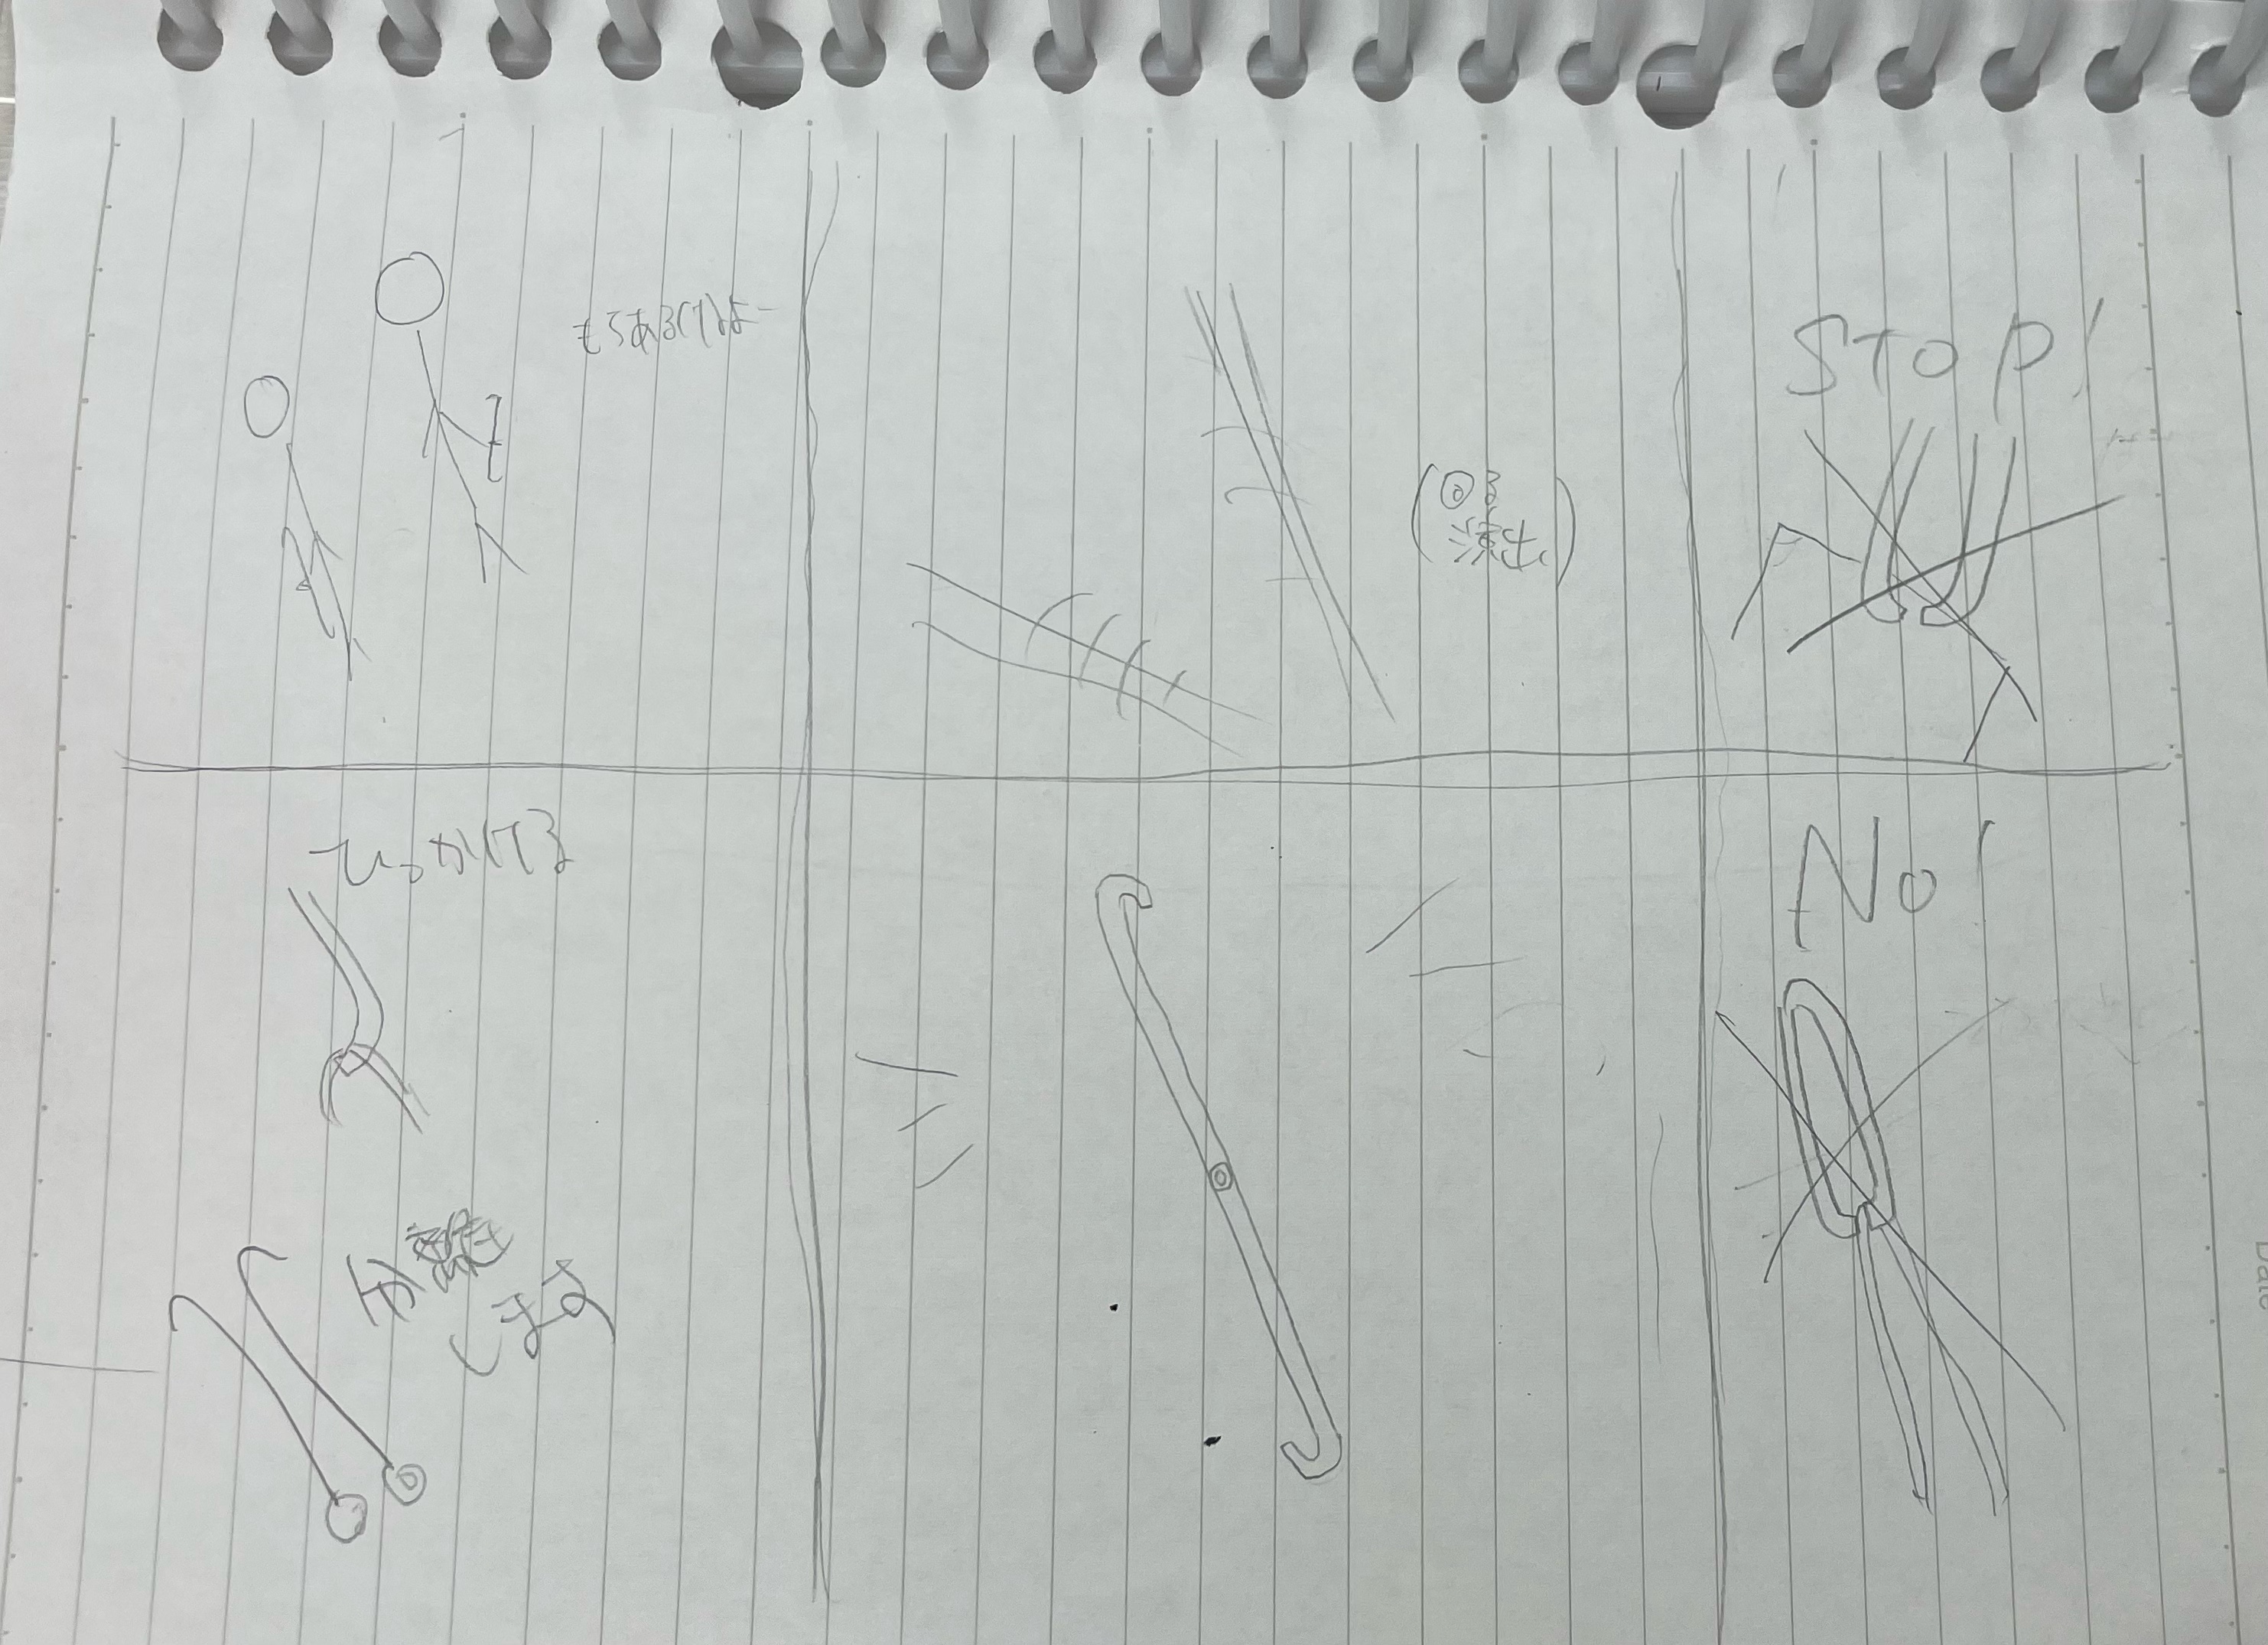 もうあるけないよー
(回る
演出)
STOP!
ひっかける
分離
します
NO!
Date